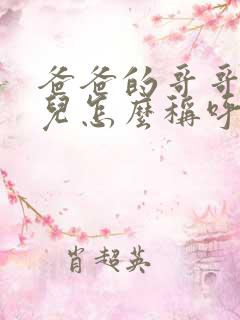 爸爸的哥哥
兒怎麼稱呼
肖超英